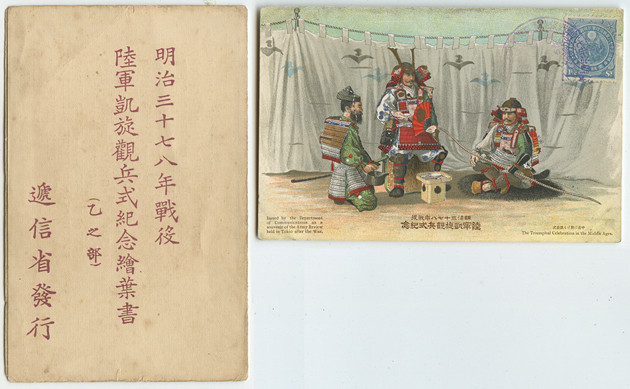 明治三十七八年戰後
陸軍凱旋觀兵式紀念繪葉書
(乙之部)
遞信省發行
Issued by the Department
of Communications as a
souvenir of the Army Review
held in Tokio after the War.
明治三十七八年戰役
陸軍凱旋觀兵式紀念
The Triumphal Celebration in the Middle Ages.